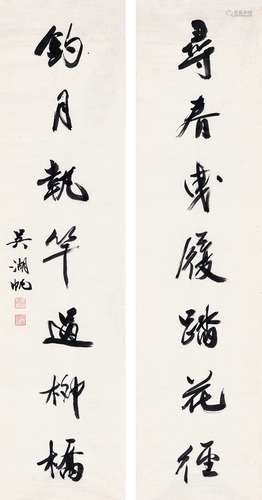 尋春曳履踏花徑
釣月執竿過柳橋
吳湖帆